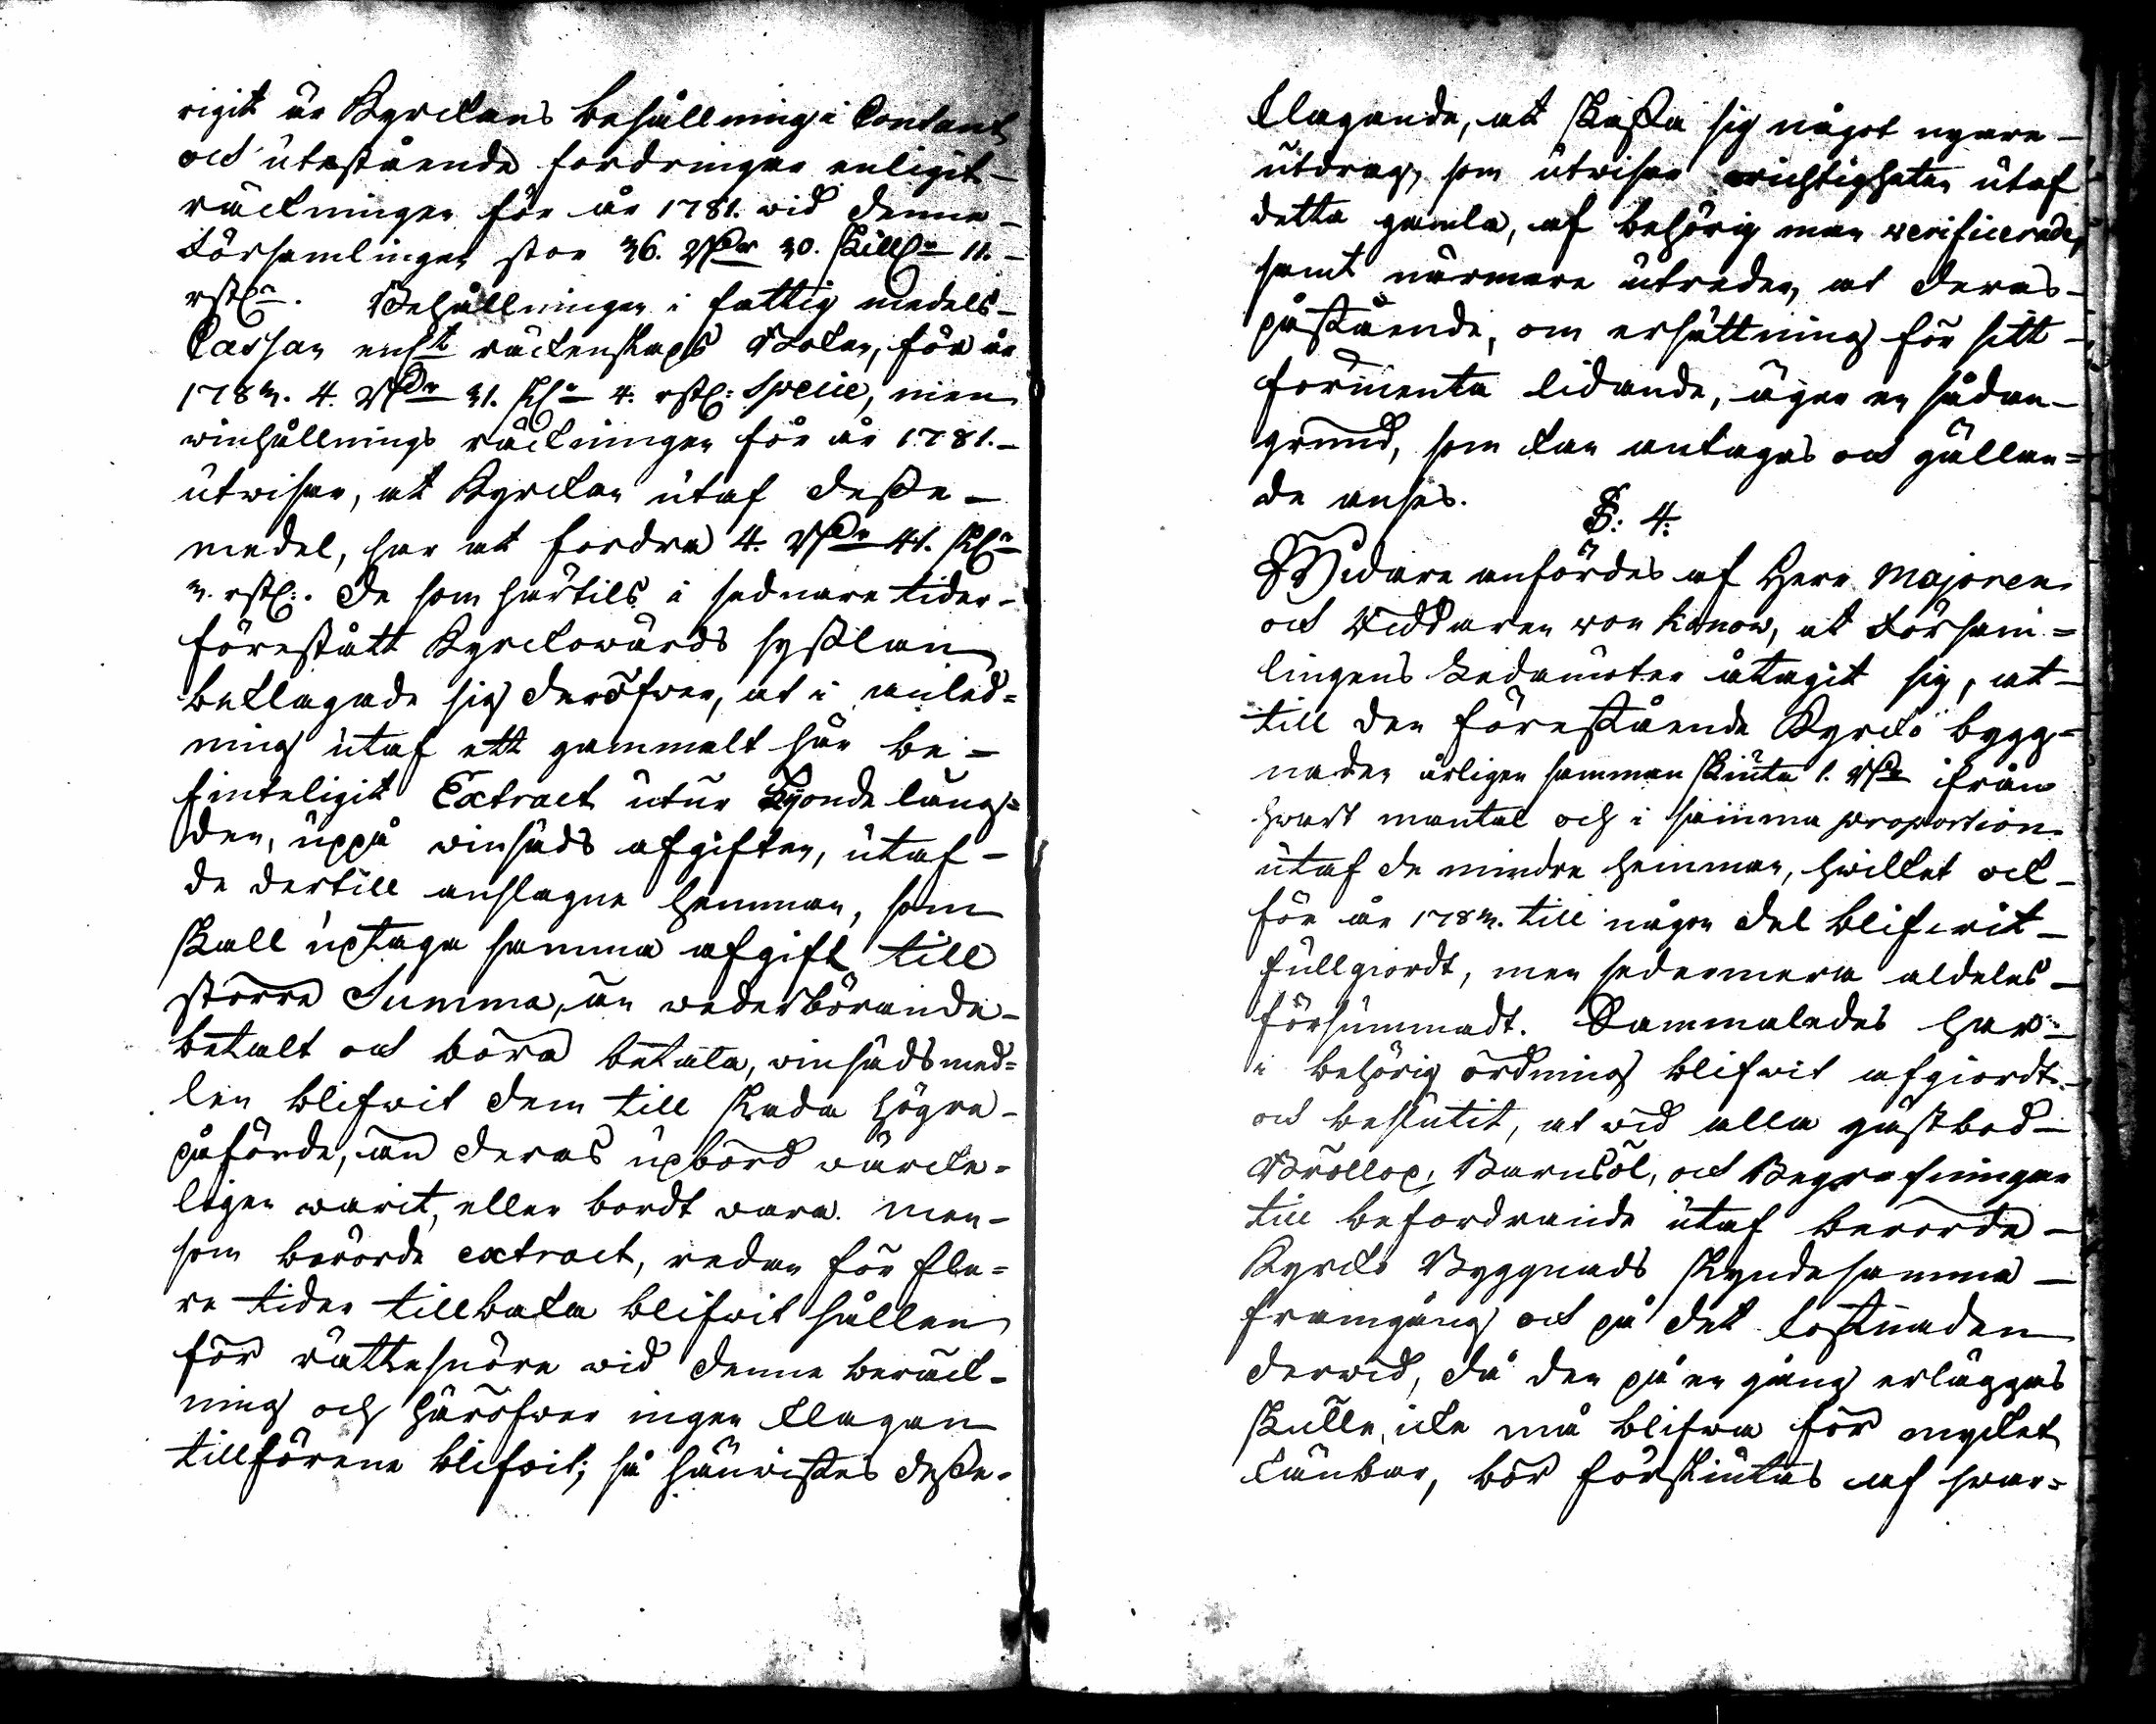 rigit är Kyrckans behållning i Contant
ock utestående fordringar enligit
räckningen för år 1781. wid denne
Församlingen stor 36. RDr 30. skillr 11.
rst. Behållningen i fattig medels
Cassan enl räckenskaps Boken, för år
1783. 4. RDr 31. sk 4. rst: Specie, men
winhållnings räckningen för år 1781.
utwisar, at Kyrckan utaf desse
medel, har att fordra 4. RDr 41. sk
3. rst:. De som härtils i sednare tider
förestått Kyrckowärds syslan
beklagade sig deröfwer, at i anled=
ning utaf ett gammalt här be=
finteligit Extract utur Tijonde läng=
den, uppå winsäds afgiften, utaf
de dertill anslagne hemman, som
skall uptaga samma afgift till
större Summa, än wederbörande
betalt ock böra betala, winsädsmed=
len blifwit dem till skada högre
påförde, än deras upbörd würcke=
ligen warit, eller bordt wara. men
som berörde extract, redan för fle=
re tider tillbaka blifwit hållen
för rättesnöre wid denne beräck=
ning och häröfwer ingen klagan
tillförene blifwit; så hänwistes desse
klagande, att skaffa sig något nyare
utdrag, som utwisar orichtigheten utaf
detta gamla, af behörig man verificerade,
samt närmare utreden, at deras
påstående, om ersättning för sitt
förmenta lidande, äger en sådan
grund, som kan antagas ock gällan=
de anses.
§: 4.
Widare anfördes af Herr Majoren
ock Riddaren von Konow, at Försam=
lingens Ledamöter åtagit sig, at
till den förestående Kyrcko bygg=
naden årligen samman skiuta 1. RDr ifrån
hwart mantal och i samma proportion
utaf de mindre hemman, hwilket ock
för år 1783. till någon del blifwit
fullgiordt, men sedermera aldeles
försummadt. Sammaledes har
i behörig ordning blifwit afgiordt
ock beslutit, at wid alla gästbod
Bröllop, Barnsöl, ock Begrafningar
till befordrande utaf berörde
Kyrcko Byggnads skyndesamma
framgång ock på det kostnaden
derwid, då den på en gång erläggas
skulle, icke må blifwa för mycket
känbar, bör förskiutas af hwar=